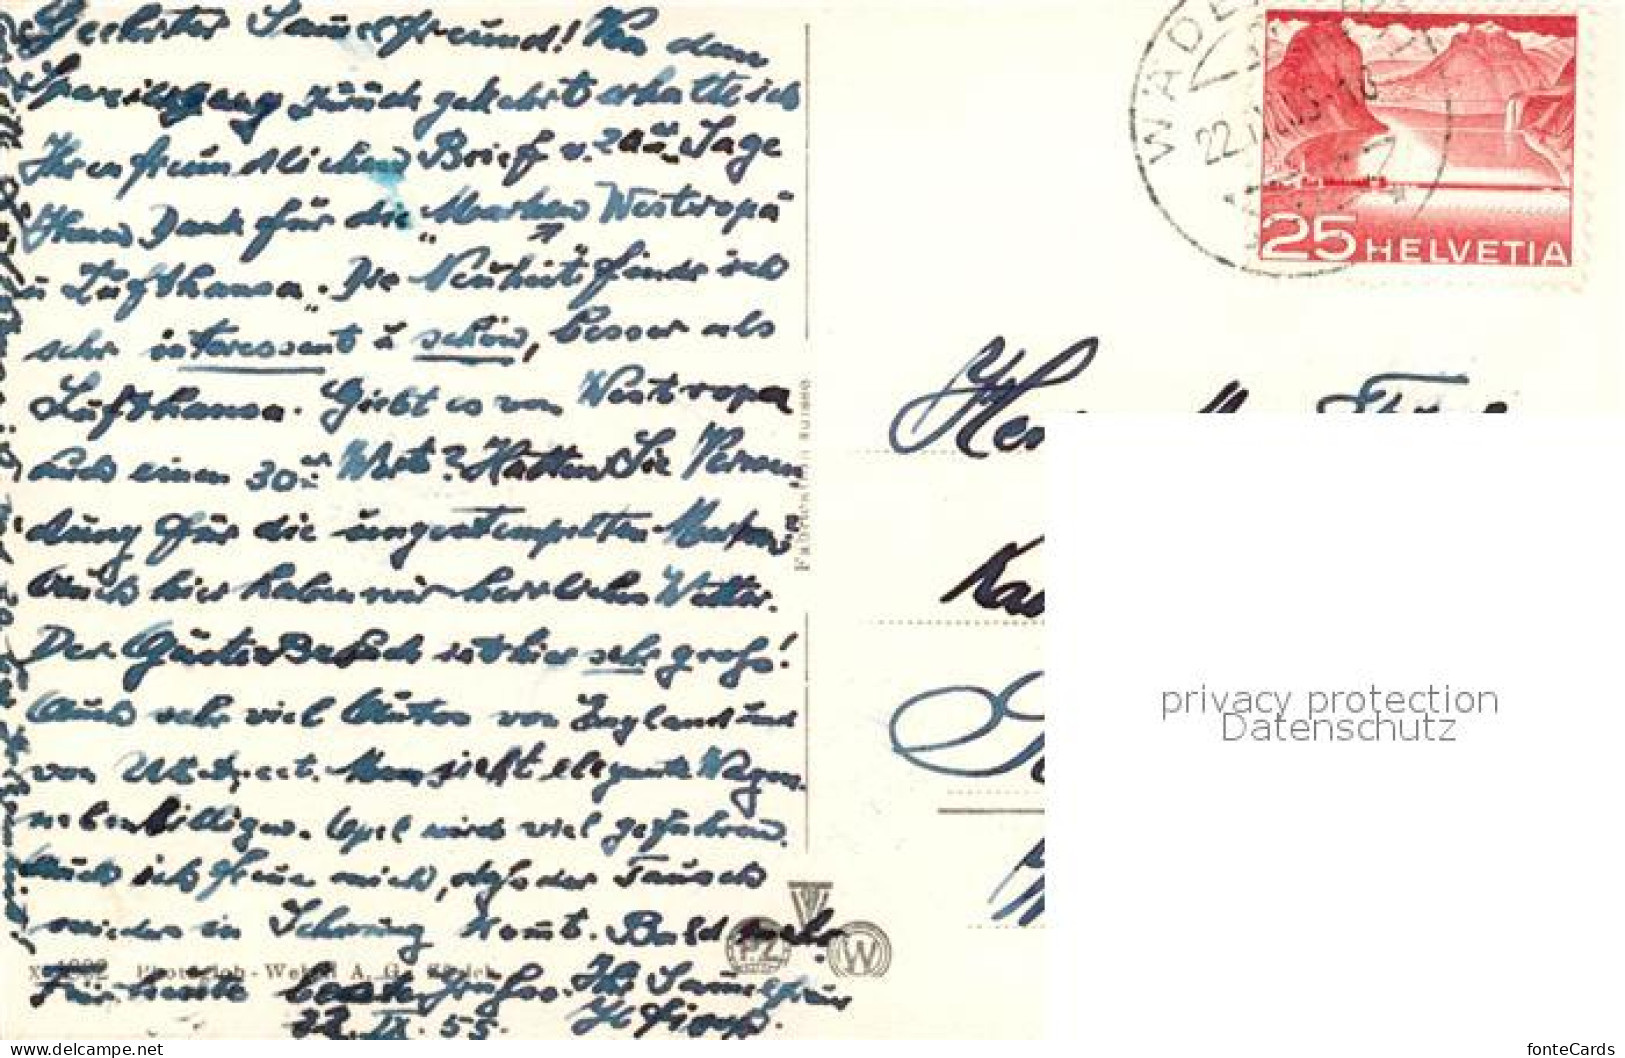 Geehrter Sammelfreund! Von dem
Spaziergang zurück gekehrt erhalte ich
Ihren freundlichen Brief u. Sage
Ihnen Dank für die „Marken Westropa
u Lufthansa". Die Neuheit finde ich
sehr interessant u schön, besser als
Lufthansa. Giebt es von Westropa
auch einen 30er Wert? Hatten Sie Verwen
dung für die ungestempelten Marken?
Auch hier haben wir herrliches Wetter.
Der Gäste Besuch ist hier sehr gross!
Auch sehr viel Autos von England und
von Utrecht. Man sieht elegante Wagen
neben billigen. Opel wird viel gefahren.
Auch ich freue mich, dass der Tausch
wieder in Schwung kommt. Bald mehr.
Für heute beste Grüsse. Ihr Sammelfreund
22. IX. 55.
Photoglob-Wehrli A. G. Zürich
PZ
W
WÄDE
22.IX.55-18
25 HELVETIA
Herrn
privacy protection
Datenschutz
www.delcampe.net
fonteCards